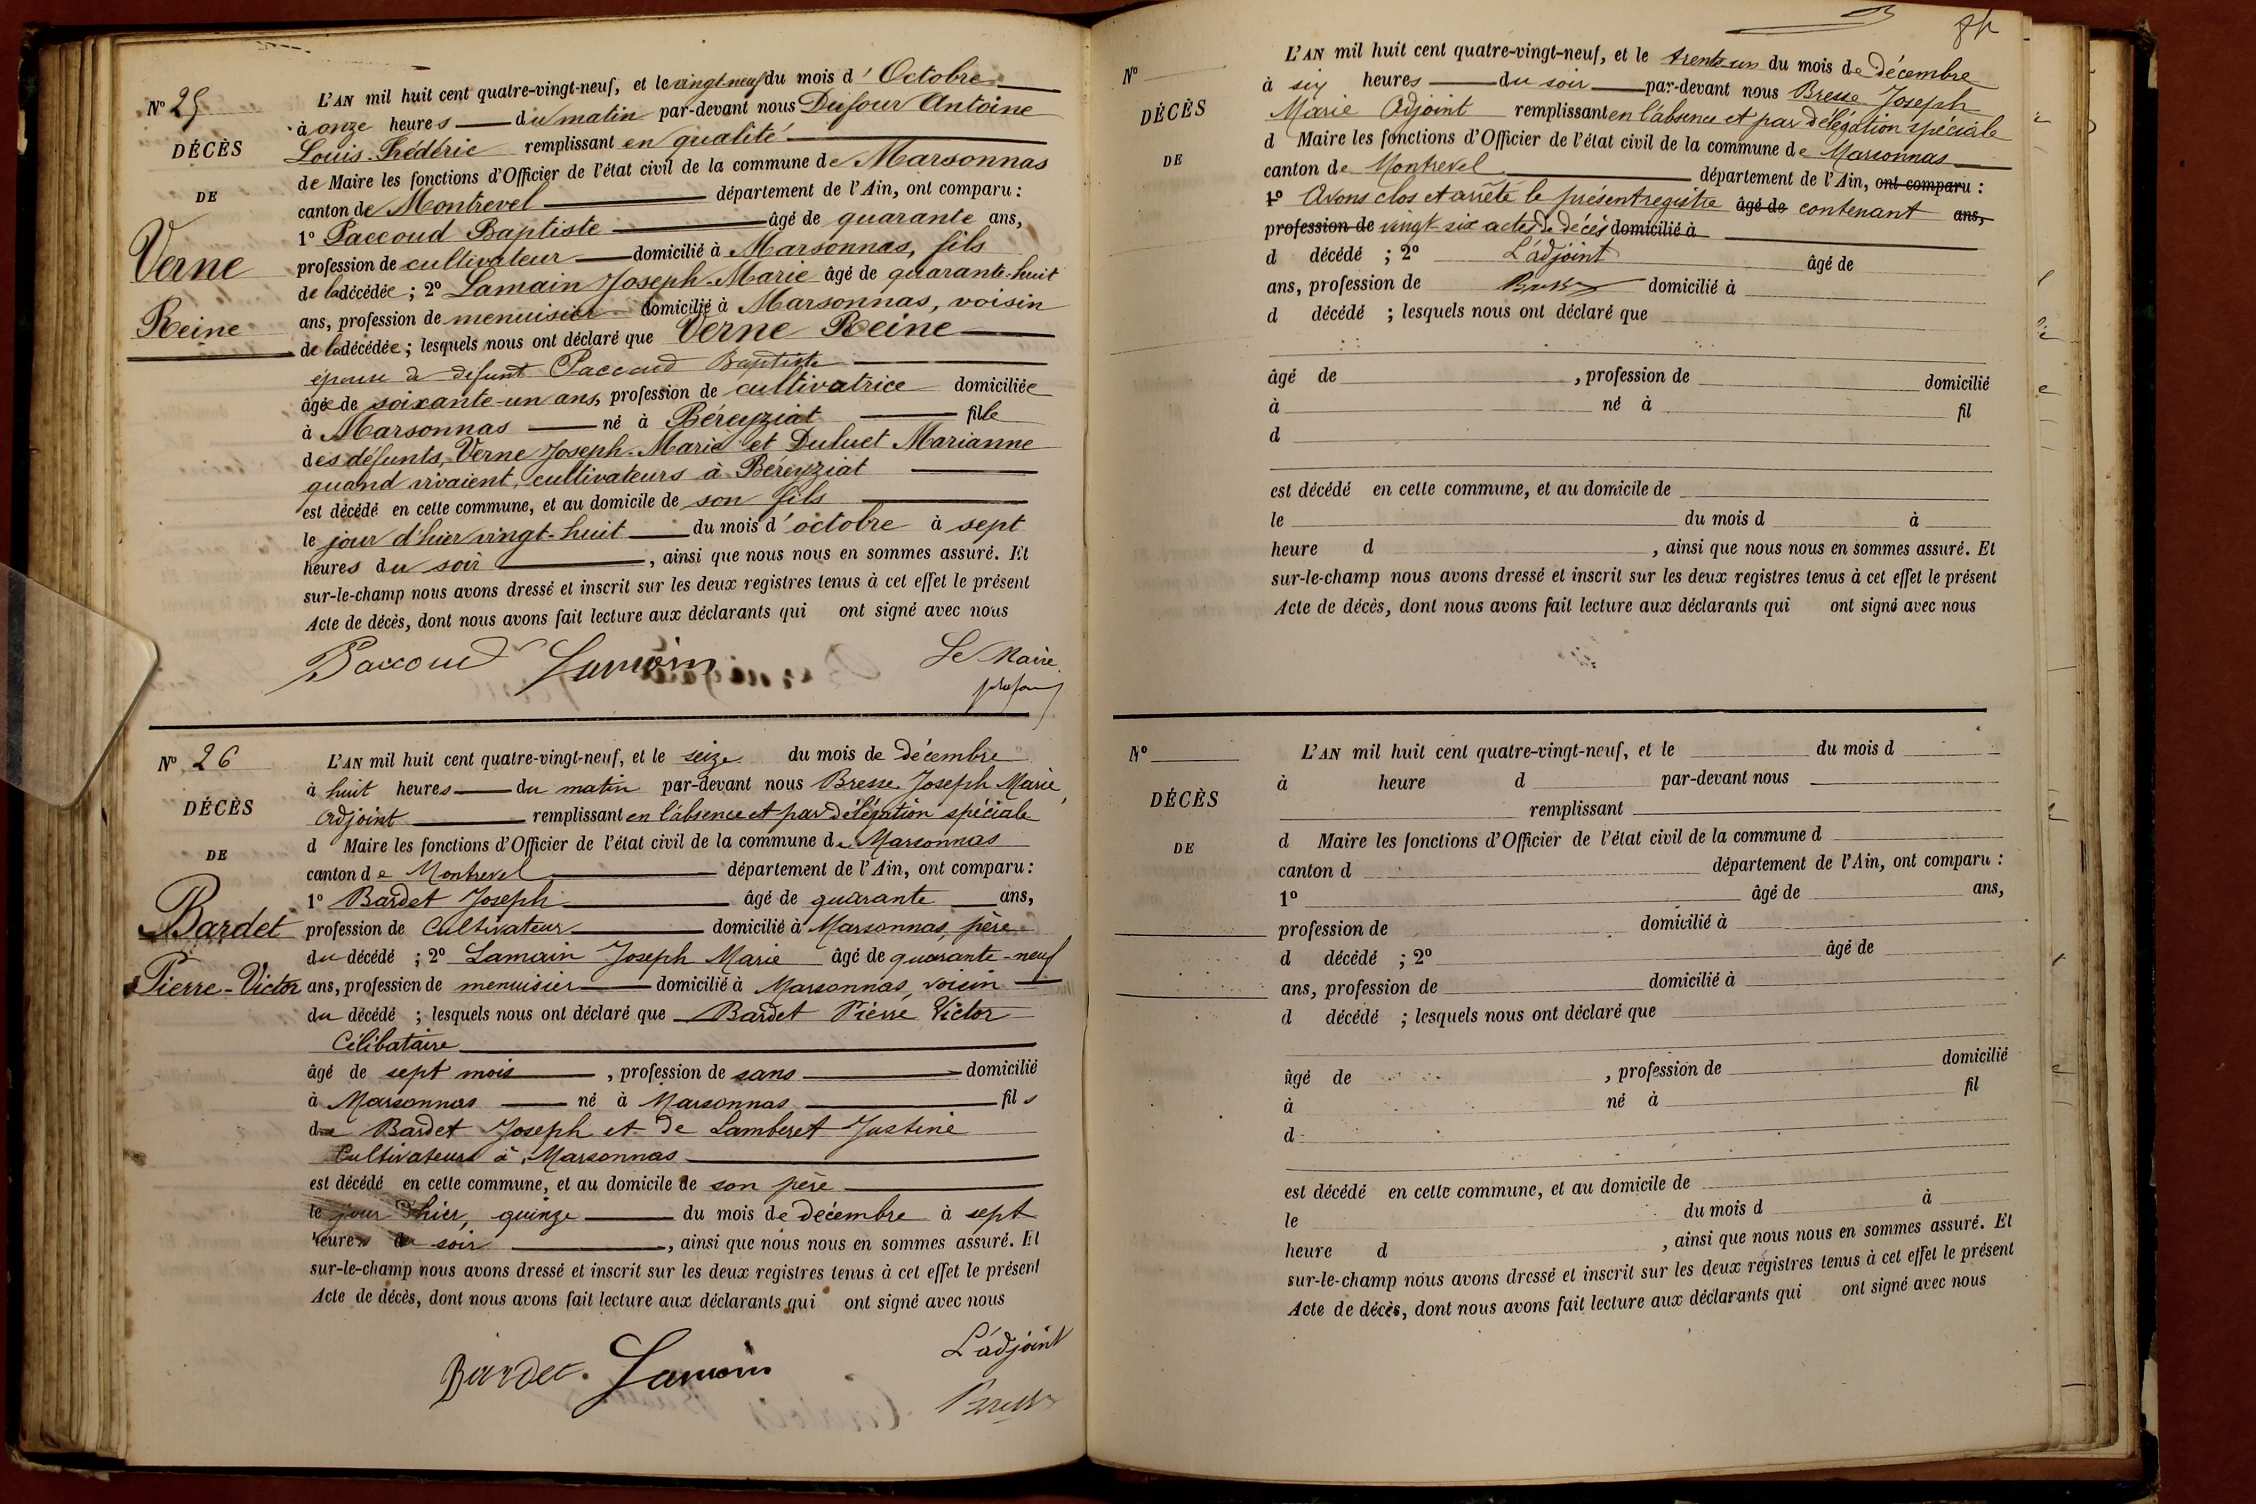 N° 25
DÉCÈS
DE
Verne
Reine
L'AN mil huit cent quatre-vingt-neuf, et le vingt-neuf du mois d'Octobre
à onze heures du matin par-devant nous Dufour Antoine
Louis-Frédéric remplissant en qualité
de Maire les fonctions d'Officier de l'état civil de la commune de Marsonnas
canton de Montrevel département de l'Ain, ont comparu :
1° Paccoud Baptiste âgé de quarante ans,
profession de cultivateur domicilié à Marsonnas, fils
de la décédée ; 2° Lamain Joseph-Marie âgé de quarante-huit
ans, profession de menuisier domicilié à Marsonnas, voisin
de la décédée ; lesquels nous ont déclaré que Verne Reine
épouse de défunt Paccoud Baptiste
âgée de soixante-un ans, profession de cultivatrice domiciliée
à Marsonnas né à Béreyziat fille
des défunts, Verne Joseph-Marie et Duluet Marianne
quand vivaient, cultivateurs à Béreyziat
est décédé en cette commune, et au domicile de son fils
le jour d'hier vingt-huit du mois d'octobre à sept
heures du soir , ainsi que nous nous en sommes assuré. Et
sur-le-champ nous avons dressé et inscrit sur les deux registres tenus à cet effet le présent
Acte de décès, dont nous avons fait lecture aux déclarants qui ont signé avec nous
Paccoud Lamain Le Maire
Dufour
N° 26
DÉCÈS
DE
Bardet
Pierre-Victor
L'AN mil huit cent quatre-vingt-neuf, et le seize du mois de décembre
à huit heures du matin par-devant nous Bresse Joseph Marie,
Adjoint remplissant en l'absence et par délégation spéciale
d Maire les fonctions d'Officier de l'état civil de la commune de Marsonnas
canton de Montrevel département de l'Ain, ont comparu :
1° Bardet Joseph âgé de quarante ans,
profession de Cultivateur domicilié à Marsonnas, père
du décédé ; 2° Lamain Joseph Marie âgé de quarante-neuf
ans, profession de menuisier domicilié à Marsonnas, voisin
du décédé ; lesquels nous ont déclaré que Bardet Pierre Victor
Célibataire
âgé de sept mois , profession de sans domicilié
à Marsonnas né à Marsonnas fils
de Bardet Joseph et de Lamberet Justine
Cultivateurs à Marsonnas
est décédé en cette commune, et au domicile de son père
le jour d'hier, quinze du mois de décembre à sept
heures du soir , ainsi que nous nous en sommes assuré. Et
sur-le-champ nous avons dressé et inscrit sur les deux registres tenus à cet effet le présent
Acte de décès, dont nous avons fait lecture aux déclarants qui ont signé avec nous
Bardet. Lamain L'adjoint
Bresse
N°
DÉCÈS
DE
L'AN mil huit cent quatre-vingt-neuf, et le trente un du mois de décembre
à six heures du soir par-devant nous Bresse Joseph
Marie Adjoint remplissant en l'absence et par délégation spéciale
d Maire les fonctions d'Officier de l'état civil de la commune de Marsonnas
canton de Montrevel département de l'Ain, ont comparu :
1° Avons clos et arrêté le présent registre âgé de contenant ans,
profession de vingt-six actes de décès domicilié à
d décédé ; 2° L'adjoint âgé de
ans, profession de Bresse domicilié à
d décédé ; lesquels nous ont déclaré que
âgé de , profession de domicilié
à né à fil
d
est décédé en cette commune, et au domicile de
le du mois d à
heure d , ainsi que nous nous en sommes assuré. Et
sur-le-champ nous avons dressé et inscrit sur les deux registres tenus à cet effet le présent
Acte de décès, dont nous avons fait lecture aux déclarants qui ont signé avec nous
N°
DÉCÈS
DE
L'AN mil huit cent quatre-vingt-neuf, et le du mois d
à heure d par-devant nous
remplissant
d Maire les fonctions d'Officier de l'état civil de la commune d
canton d département de l'Ain, ont comparu :
1° âgé de ans,
profession de domicilié à
d décédé ; 2° âgé de
ans, profession de domicilié à
d décédé ; lesquels nous ont déclaré que
âgé de , profession de domicilié
à né à fil
d
est décédé en cette commune, et au domicile de
le du mois d à
heure d , ainsi que nous nous en sommes assuré. Et
sur-le-champ nous avons dressé et inscrit sur les deux registres tenus à cet effet le présent
Acte de décès, dont nous avons fait lecture aux déclarants qui ont signé avec nous